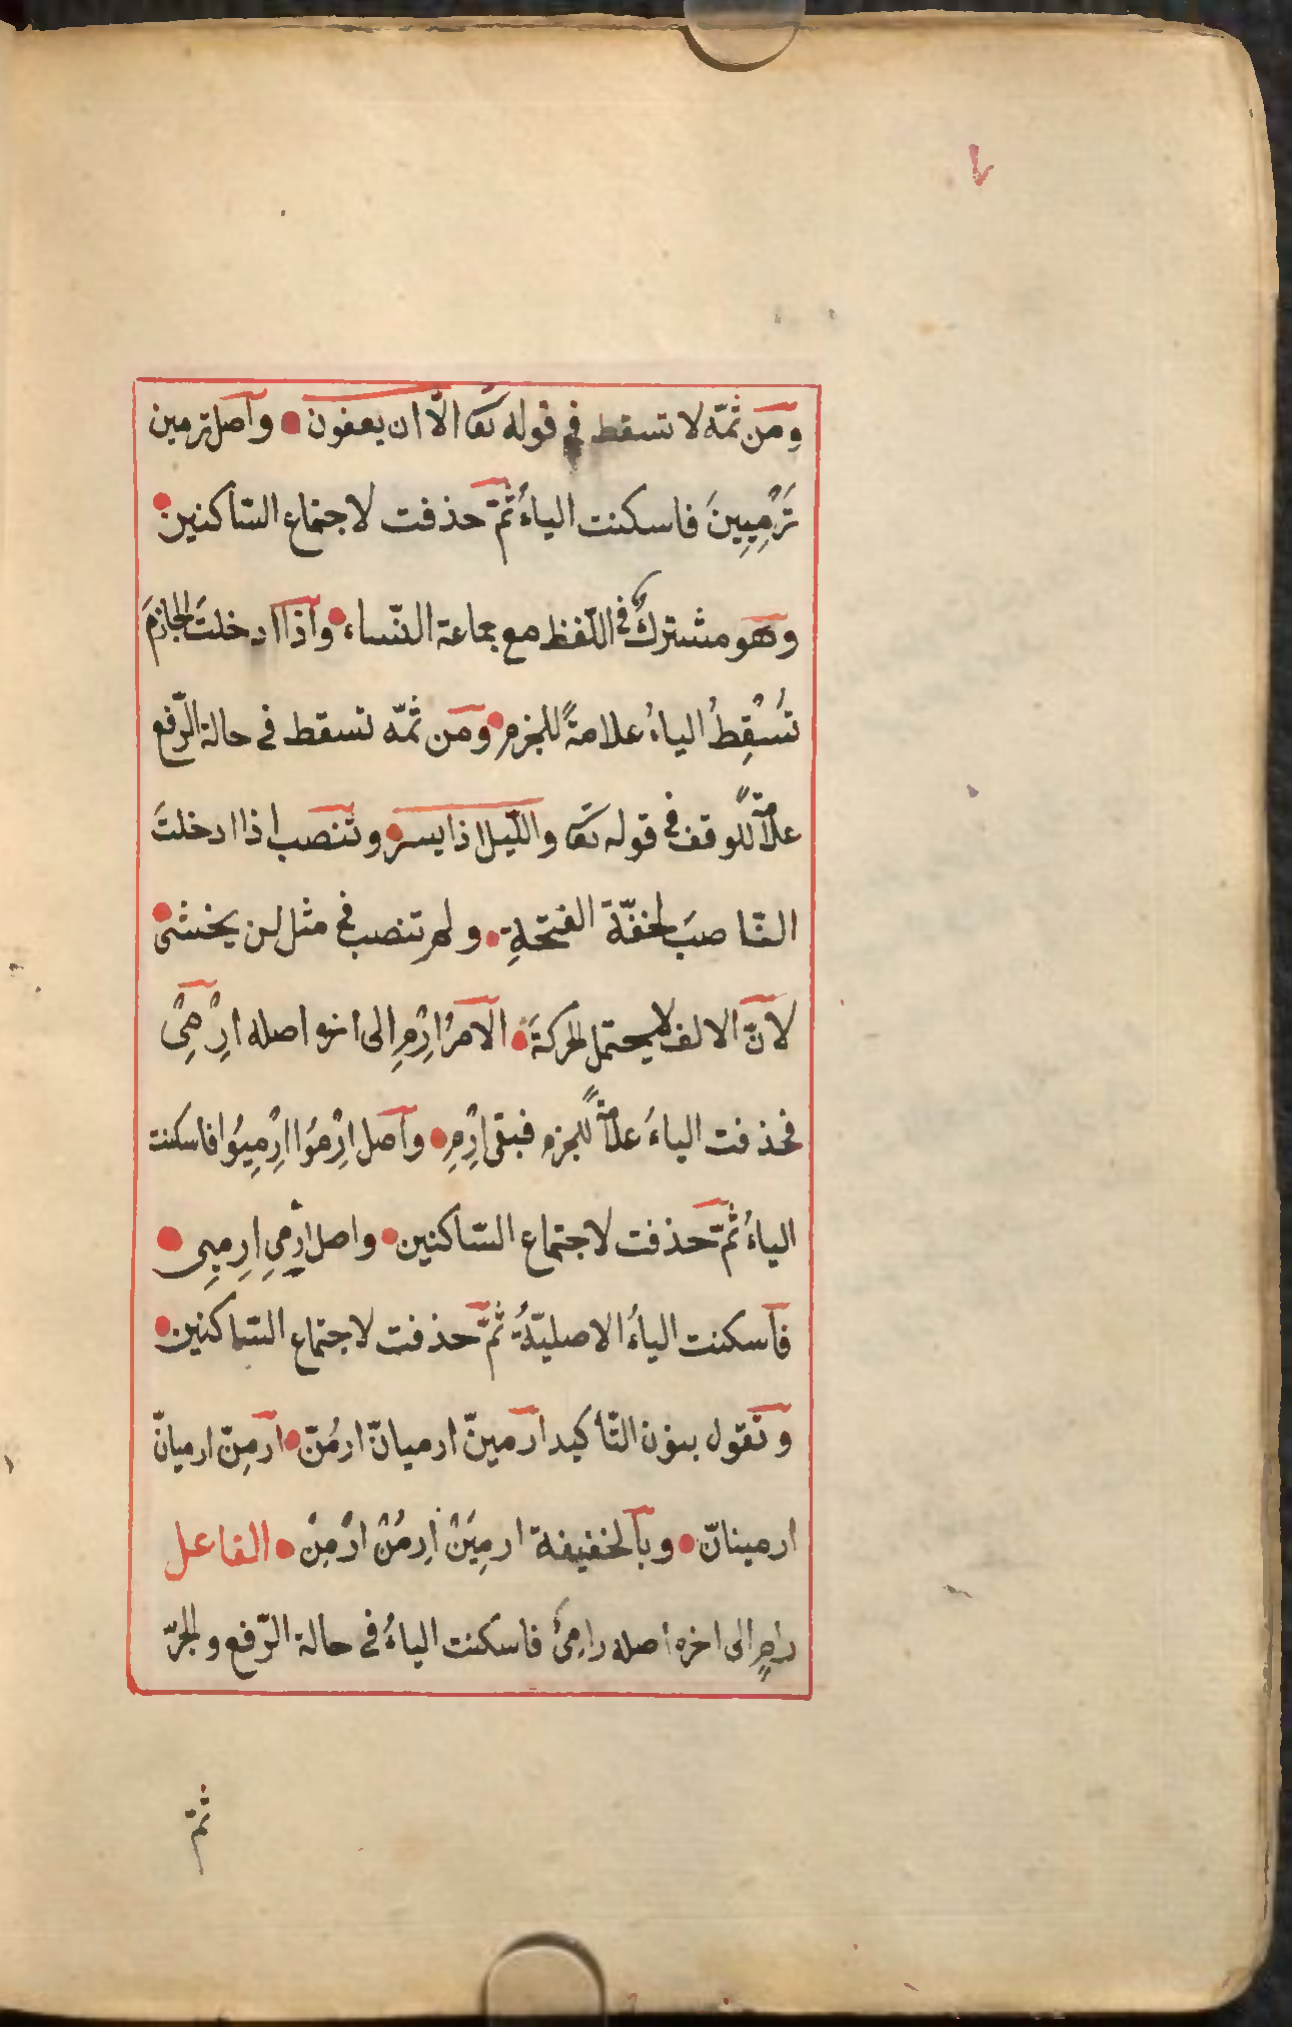 ٧
ومن ثمّه لا تسقط في قوله تعا الّا ان يعفون • واصل ترمين
تَرْمِيِينَ فاسكنت الياءُ ثمّ حذفت لاجتماع السّاكنين •
وهو مشتركٌ في اللّفظ مع جماعة النّساء • واذا ادخلتَ الجازمَ
تُسْقِطُ الياءُ علامةً للجزم • ومن ثمّه تسقط في حالة الرّفع
علامةً للوقف في قوله تعا واللّيل اذا يسر • وتنصب اذا ادخلتَ
النّاصبَ لخفّة الفتحةِ • ولم تنصب في مثل لن يخشى •
لانّ الالف لا يحتمل الحركةَ • الامرُ ارْمِ الى اخره اصله ارْمِىْ
فحذفت الياءُ علامةً للجزم فبقى ارْمِ • واصل ارْمُوا ارْمِيُوا فاسكنت
الياءُ ثمّ حذفت لاجتماع السّاكنين • واصل ارْمِى ارمِيِى •
فاسكنت الياءُ الاصليّةُ ثمّ حذفت لاجتماع السّاكنين •
وتقول بنون التّأكيد ارمينّ ارميانّ ارمُنّ • ارمِنّ ارميانّ
ارمينانّ • وبالخفيفة ارمِيَنْ ارمُنْ ارْمِنْ • الفاعل
رامٍ الى اخره اصله رامىٌ فاسكنت الياءُ في حالة الرّفع والجرّ
ثمّ